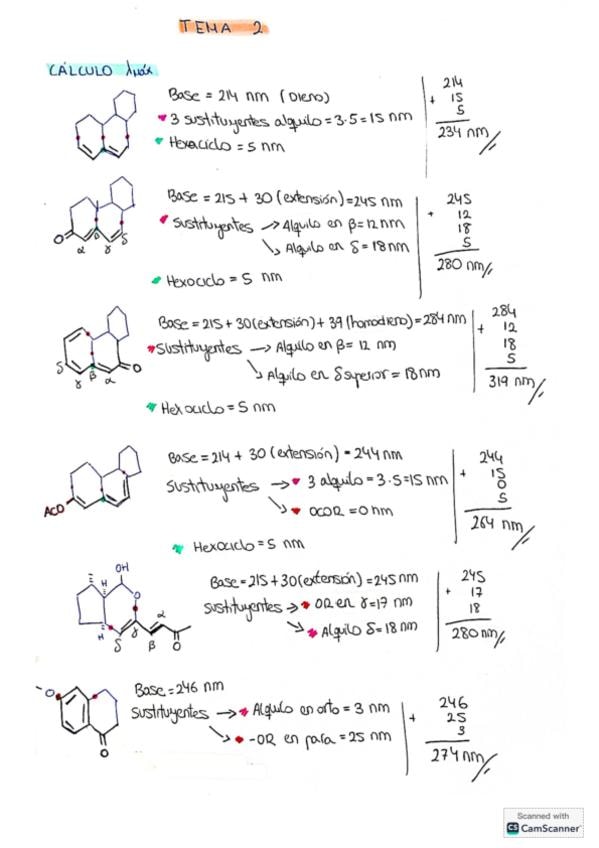 TEMA 2
CÁLCULO λmáx
Base = 214 nm (Dieno)
3 sustituyentes alquilo = 3·5 = 15 nm
Hexaciclo = 5 nm
214
+ 15
5
234 nm
Base = 215 + 30 (extensión) = 245 nm
Sustituyentes → Alquilo en β = 12 nm
↳ Alquilo en δ = 18 nm
Hexociclo = 5 nm
O α β γ δ
245
+ 12
18
5
280 nm
Base = 215 + 30 (extensión) + 39 (homodieno) = 284 nm
Sustituyentes → Alquilo en β = 12 nm
↳ Alquilo en δ superior = 18 nm
Hexociclo = 5 nm
δ γ β α O
284
+ 12
18
5
319 nm
Base = 214 + 30 (extensión) = 244 nm
Sustituyentes → 3 alquilo = 3·5 = 15 nm
↳ OCOR = 0 nm
Hexociclo = 5 nm
AcO
244
+ 15
0
5
264 nm
OH
H
O
H
δ γ β α
O
Base = 215 + 30 (extensión) = 245 nm
Sustituyentes → OR en γ = 17 nm
↳ Alquilo δ = 18 nm
245
+ 17
18
280 nm
O
O
Base = 246 nm
Sustituyentes → Alquilo en orto = 3 nm
↳ -OR en para = 25 nm
246
+ 25
3
274 nm
Scanned with
CS CamScanner